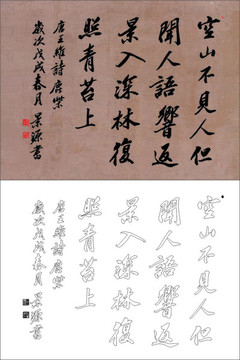 空山不見人但
聞人語響返
景入深林復
照青苔上
唐王維詩鹿柴
歲次戊戌春月 景源書
空山不見人但
聞人語響返
景入深林復
照青苔上
唐王維詩鹿柴
歲次戊戌春月 景源書